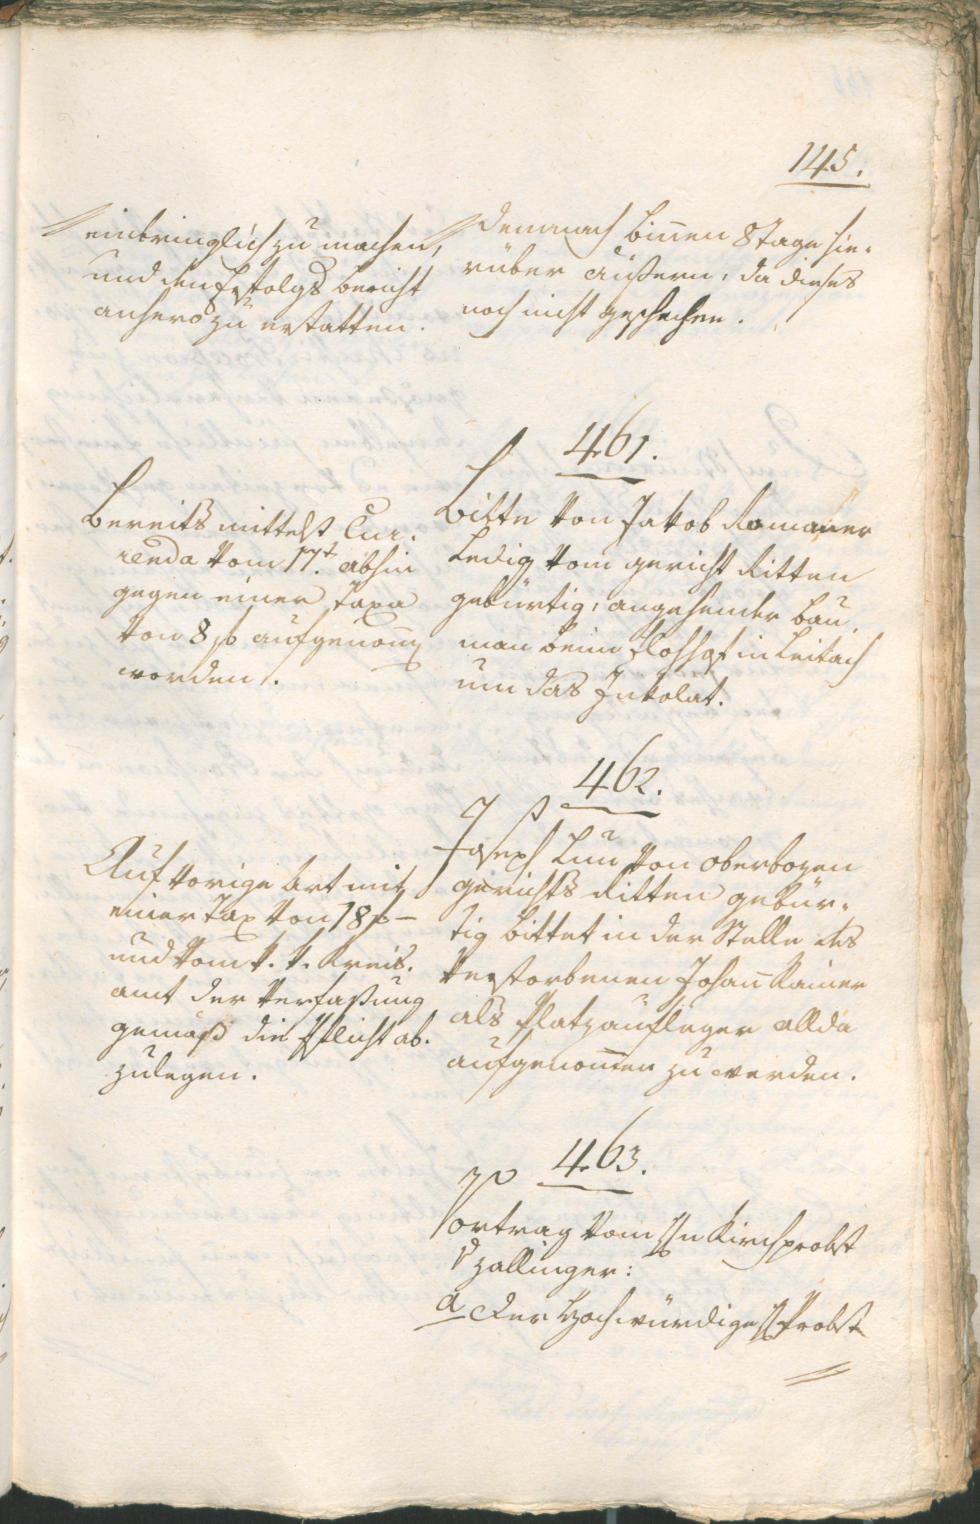 145.
einbringlich zu machen,
und den Erfolgs bericht
anhero zu erstatten.
demnach binnen 8 Tage hie-
rüber äußern, da dieses
noch nicht geschehen.
461.
Bereits mittelst Cur-
renda vom 17t abhin
gegen einer Taxa
von 8 f aufgenom̅
worden.
Bitte von Jakob Ramoner
ledig vom gericht Ritten
gebürtig, angehender bau
man beim in Leitach
um das Inkolat.
462.
Auf vorige Art mit
einer Tax von 18 f –
und vom k. k. Kreis-
amt der Verfaßung
gemäß die Pflicht ab-
zulegen.
Joseph Lun von oberbozen
gerichts Ritten gebür-
tig bittet in der Stelle des
verstorbenen Johan̅ Rainer
als Platzaufleger allda
aufgenom̅en zu werden.
463.
Vortrag vom Hn Kirchprobst
v Zallinger:
a Der Hochwürdige H Probst